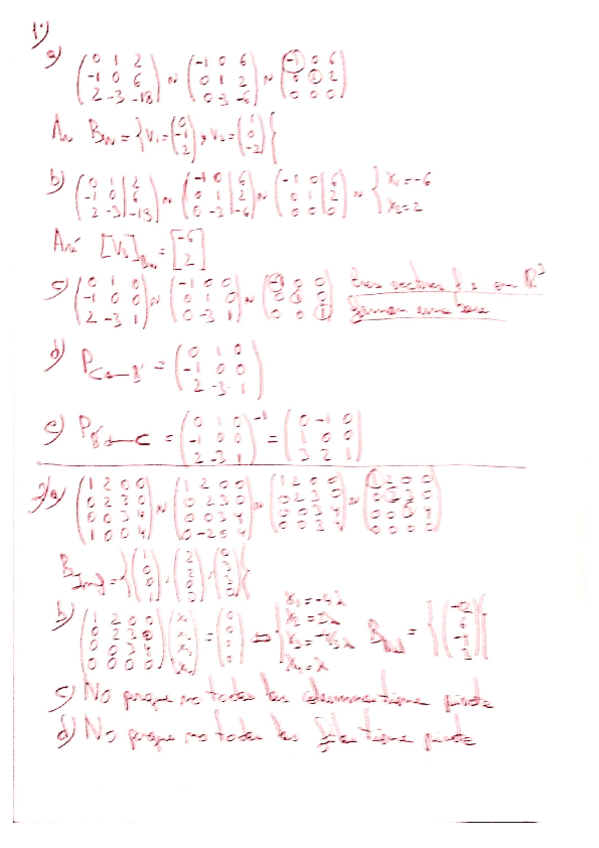 1)
a) (0 1 2; -1 0 6; 2 -3 -18) ~ (-1 0 6; 0 1 2; 0 -3 -6) ~ (-1 0 6; 0 1 2; 0 0 0)
B_W = { v1 = (0; -1; 2), v2 = (1; 0; -3) }
b) (0 1 | 2; -1 0 | 6; 2 -3 | -18) ~ (-1 0 | 6; 0 1 | 2; 0 -3 | -6) ~ (-1 0 | 6; 0 1 | 2; 0 0 | 0) ~ { x1 = -6; x2 = 2
Así [V3]_BW = [-6; 2]
c) (0 1 0; -1 0 0; 2 -3 1) ~ (-1 0 0; 0 1 0; 0 -3 1) ~ (-1 0 0; 0 1 0; 0 0 1) Tres vectores en R³ forman una base
d) P_C←B = (0 1 0; -1 0 0; 2 -3 1)
e) P_B←C = (0 1 0; -1 0 0; 2 -3 1)^-1 = (0 -1 0; 1 0 0; 3 2 1)
2) a) (1 2 0 0; 0 2 3 0; 0 0 3 4; 1 0 0 4) ~ (1 2 0 0; 0 2 3 0; 0 0 3 4; 0 -2 0 4) ~ (1 2 0 0; 0 2 3 0; 0 0 3 4; 0 0 3 4) ~ (1 2 0 0; 0 2 3 0; 0 0 3 4; 0 0 0 0)
B_Img = { (1; 0; 0; 1), (2; 2; 0; 0), (0; 3; 3; 0) }
b) (1 2 0 0; 0 2 3 0; 0 0 3 4; 0 0 0 0) (x1; x2; x3; x4) = (0; 0; 0; 0) ⇔ { x1 = -4λ; x2 = 2λ; x3 = -4/3 λ; x4 = λ
c) No porque no todas las columnas tiene pivote
d) No porque no todas las filas tiene pivote